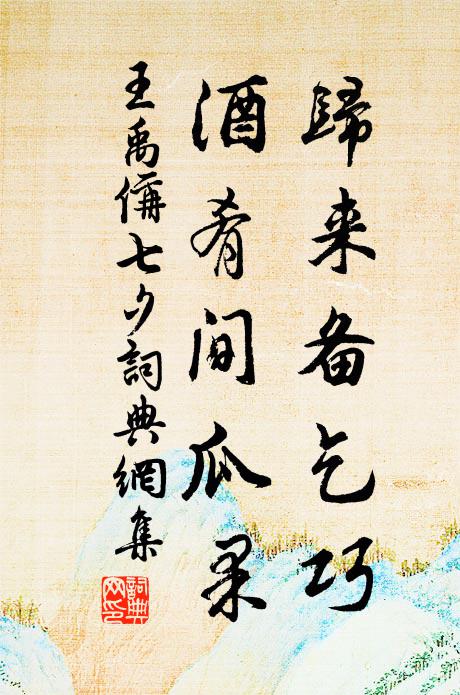 歸来备乞巧
酒肴间瓜果
王禹偁七夕詞典網集
詞典网印